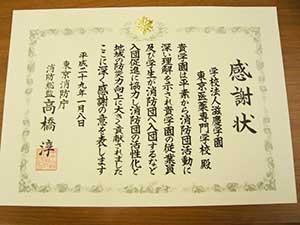 感謝状
学校法人滋慶学園
東京医薬専門学校 殿
貴学園は平素から消防団活動に
深い理解を示され貴学園の従業員
及び学生が消防団へ入団するなど
入団促進に協力し消防団の活性化と
地域の防災力向上に大きく貢献されました
ここに深く感謝の意を表します
平成二十九年一月八日
東京消防庁
消防総監 高橋 淳